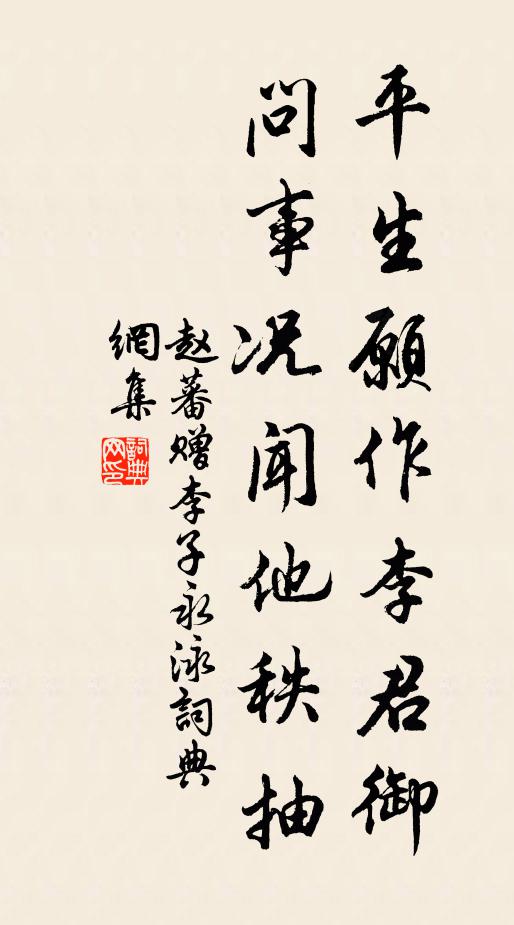 平生願作李君御
問事况聞他秩抽
赵蕃赠李子永泳詞典
網集
詞典网印